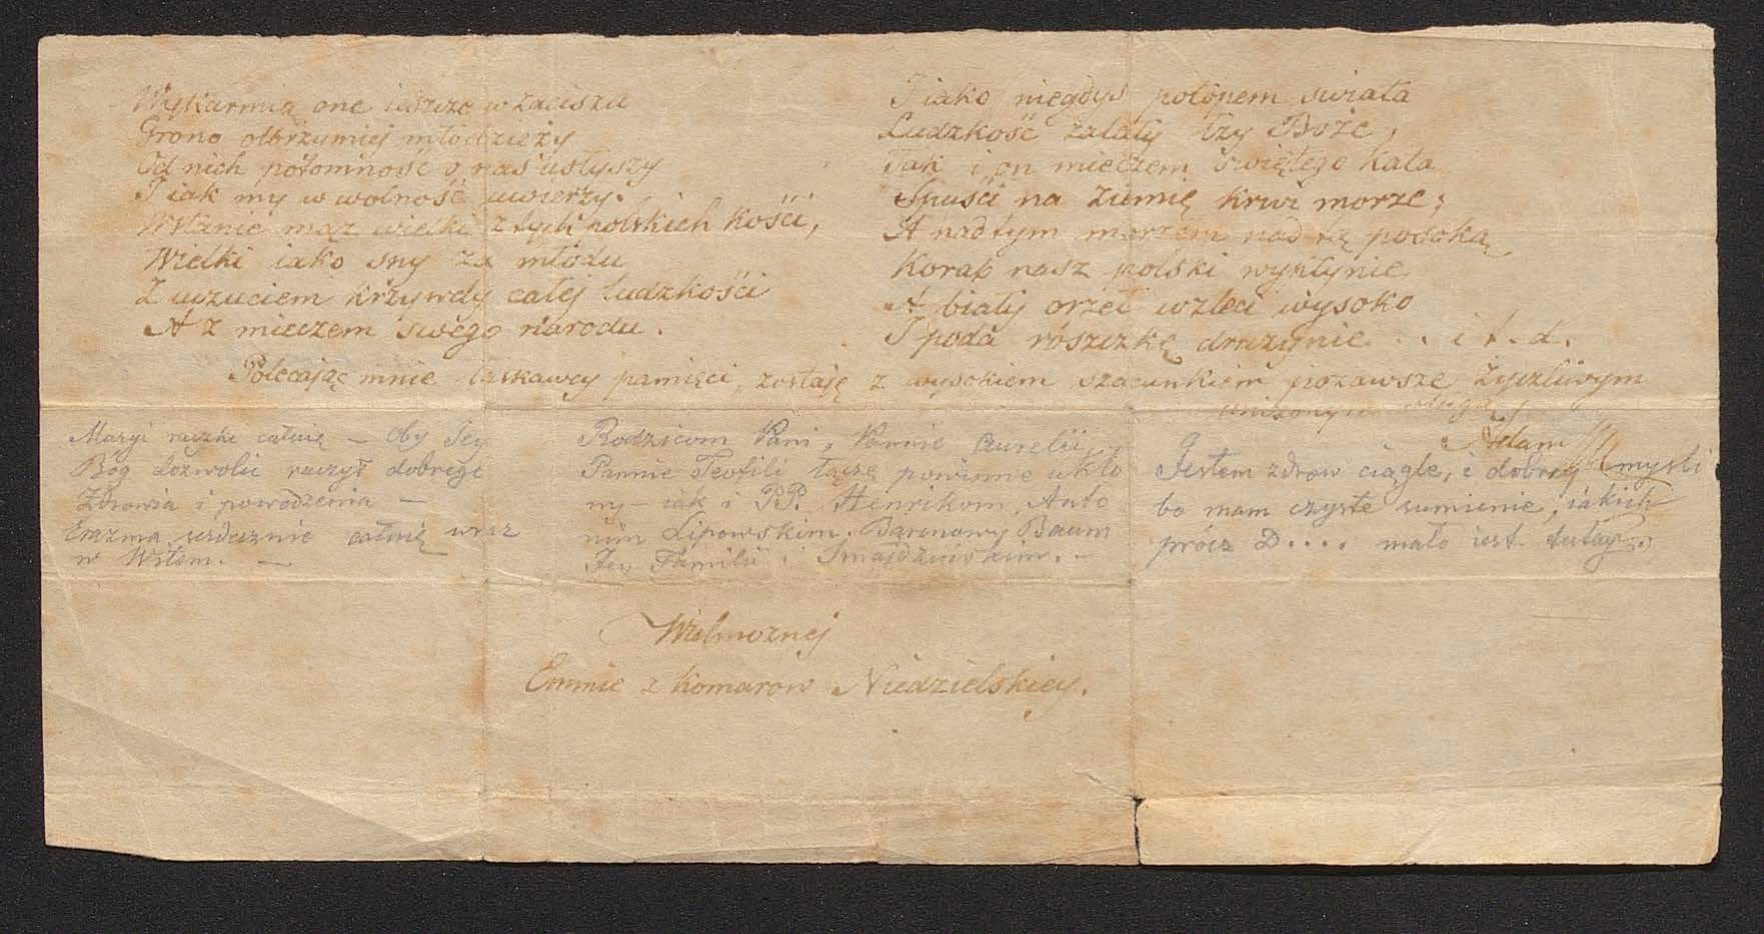 Wykarmią one ieszcze w zaciszu
Grono olbrzymiej młodzieży
Od nich potomność o nas usłyszy
I iak my w wolność uwierzy.
Wstanie mąż wielki z tych polskich kości,
Wielki iako sny za młodu
Z uczuciem krzywdy całej ludzkości
A z mieczem swego narodu.
I iako niegdyś potopem świata
Ludzkość zalały łzy Boże,
Tak i on mieczem świętego kata
Spuści na ziemię krwi morze;
A nad tym morzem nad tą posoką
Korab nasz polski wypłynie
A biały orzeł wzleci wysoko
I poda rószczkę drużynie . . i t. d.
Polecając mnie łaskawey pamięci, zostaję z wysokiem szacunkiem i nazawsze życzliwym
uniżonym sługą
Adam
Maryi rączki całuię – Oby Jey
Bóg dozwolić raczył dobrego
Zdrowia i powodzenia –
Erazma serdecznie całuię wraz
w Witom. –
Rodzicom Pani, Pannie Aurelii,
Pannie Teofili łączę powinne ukło
ny – iak i PP. Henrikom, Anto
nim Lipowskim. Baronowy Baum
Jey Familii i
Jestem zdrow ciągle, i dobrey myśli
bo mam czyste sumienie, iakich
prócz D.... mało iest tutay.
Wielmożnej
Emmie z Komarow Niedzielskiey.